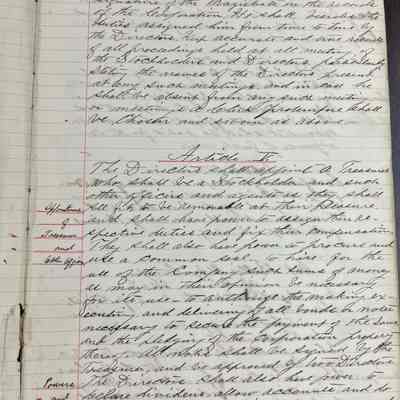 signature of the Magistrate in the records
of the Corporation. He shall discharge the
duties assigned him from time to time by
the Directors, keep accurate and true records
of all proceedings held at all meetings of
the Stockholders and Directors particularly
stating the names of the Directors present
at any such meetings and in case he
shall be absent from any such meeting
or meetings a clerk protempore shall
be chosen and sworn as above
Article V
The Directors shall appoint a Treasurer
who shall be a Stockholder and such
other officers and agents as they shall
see fit to removable at their pleasure
and shall have power to assign their re-
spective duties and fix their compensation
Appointment
of
Treasurer
and
other officers
They shall also have power to procure and
use a common seal, to hire for the
use of the Company such sums of money
as may in their opinion be necessary
for its use - to authorize the making ex-
ecuting and delivering of all bonds or notes
necessary to secure the payment of the same
and the pledging of the Corporation property
therefor. All notes shall be signed by the
Treasurer, and be approved by two Directors
Powers
The Directors shall also have power to
declare dividends, allow accounts and do